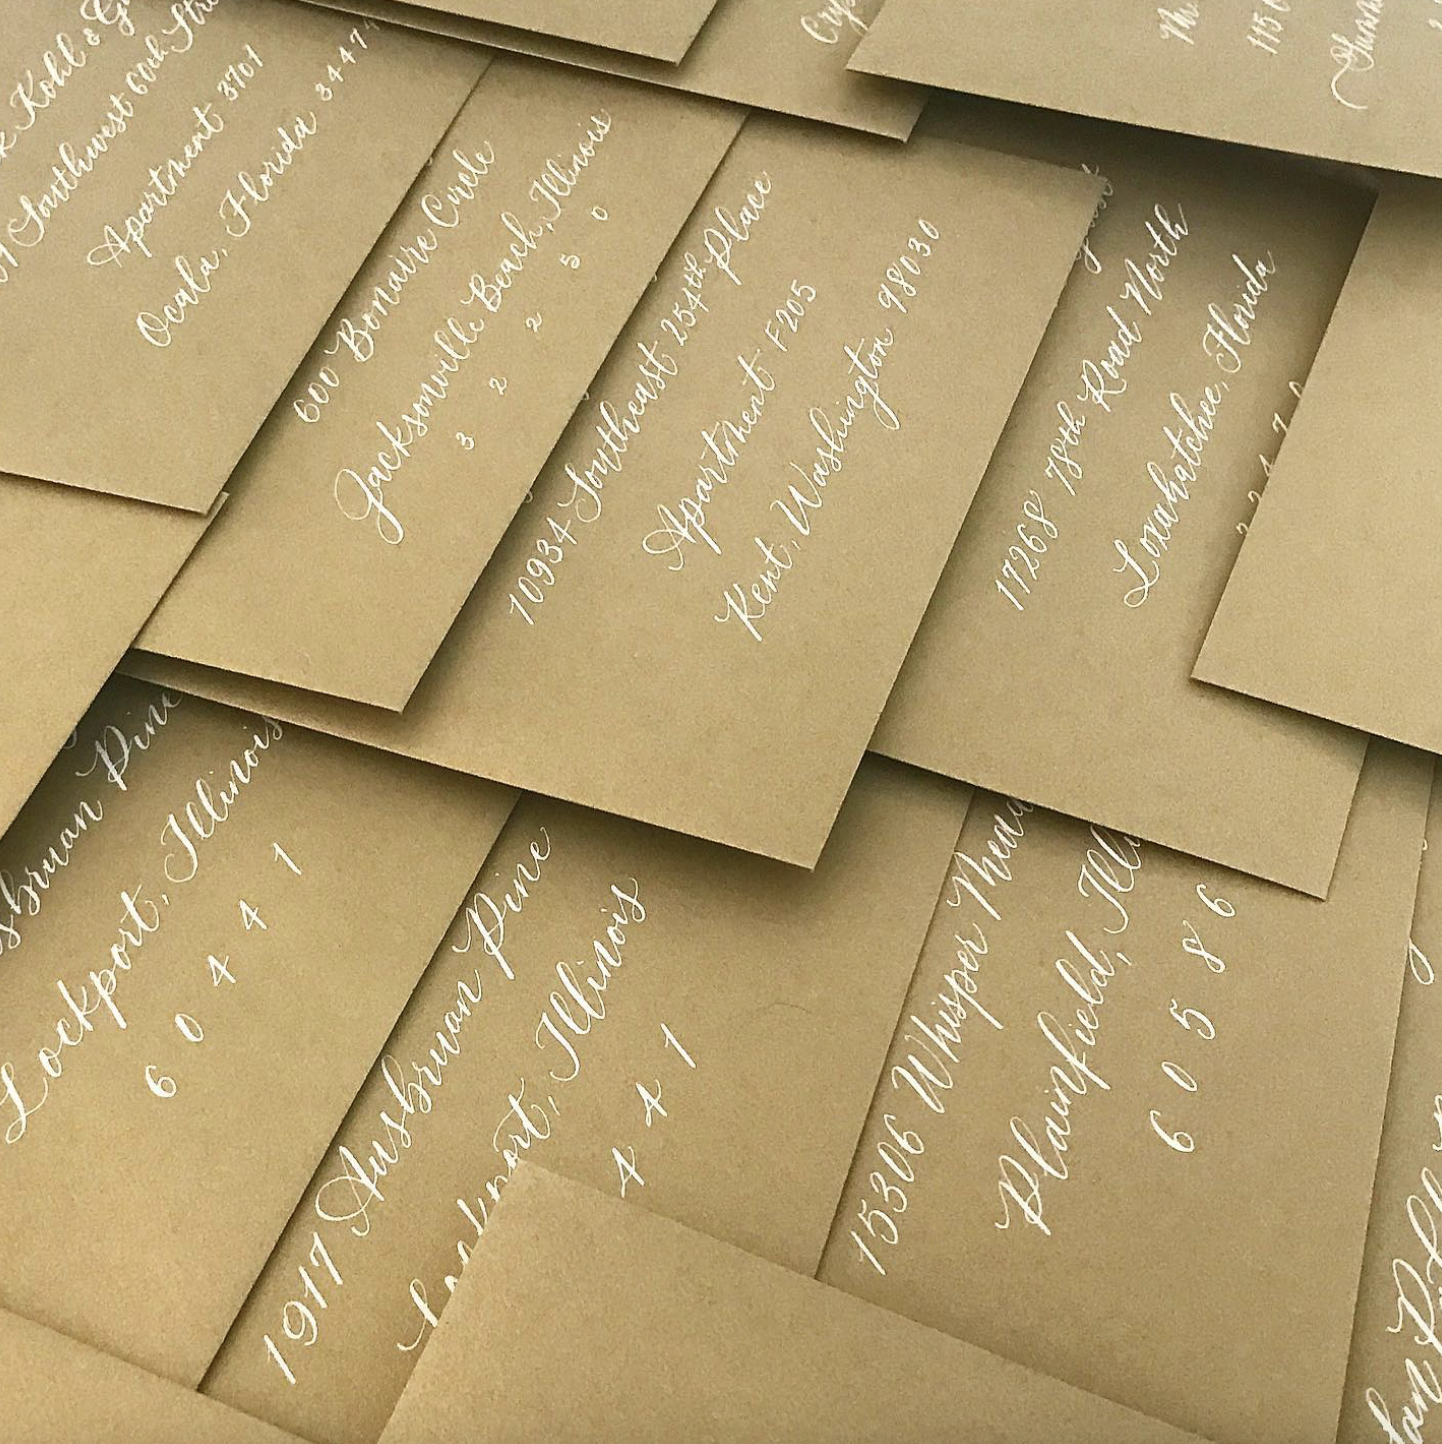 Kohl &
Southwest 60th
Apartment 3701
Ocala, Florida 3447
600 Bonaire Circle
Jacksonville Beach, Illinois
3 2 2 5 0
10934 Southeast 254th Place
Apartment F205
Kent, Washington 98030
17268 78th Road North
Loxahatchee, Florida
Pine
Lockport, Illinois
6 0 4 4 1
1917 Ausbruan Pine
Lockport, Illinois
4 4 1
15306 Whisper
Plainfield,
6 0 5 8 6